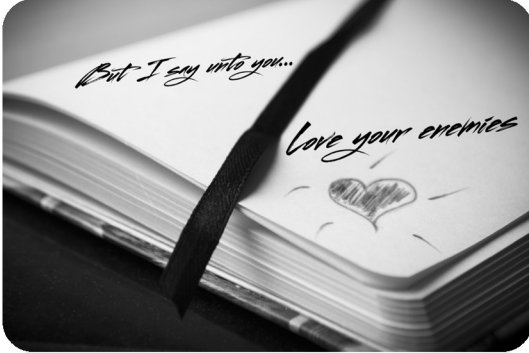 But I say unto you...
Love your enemies